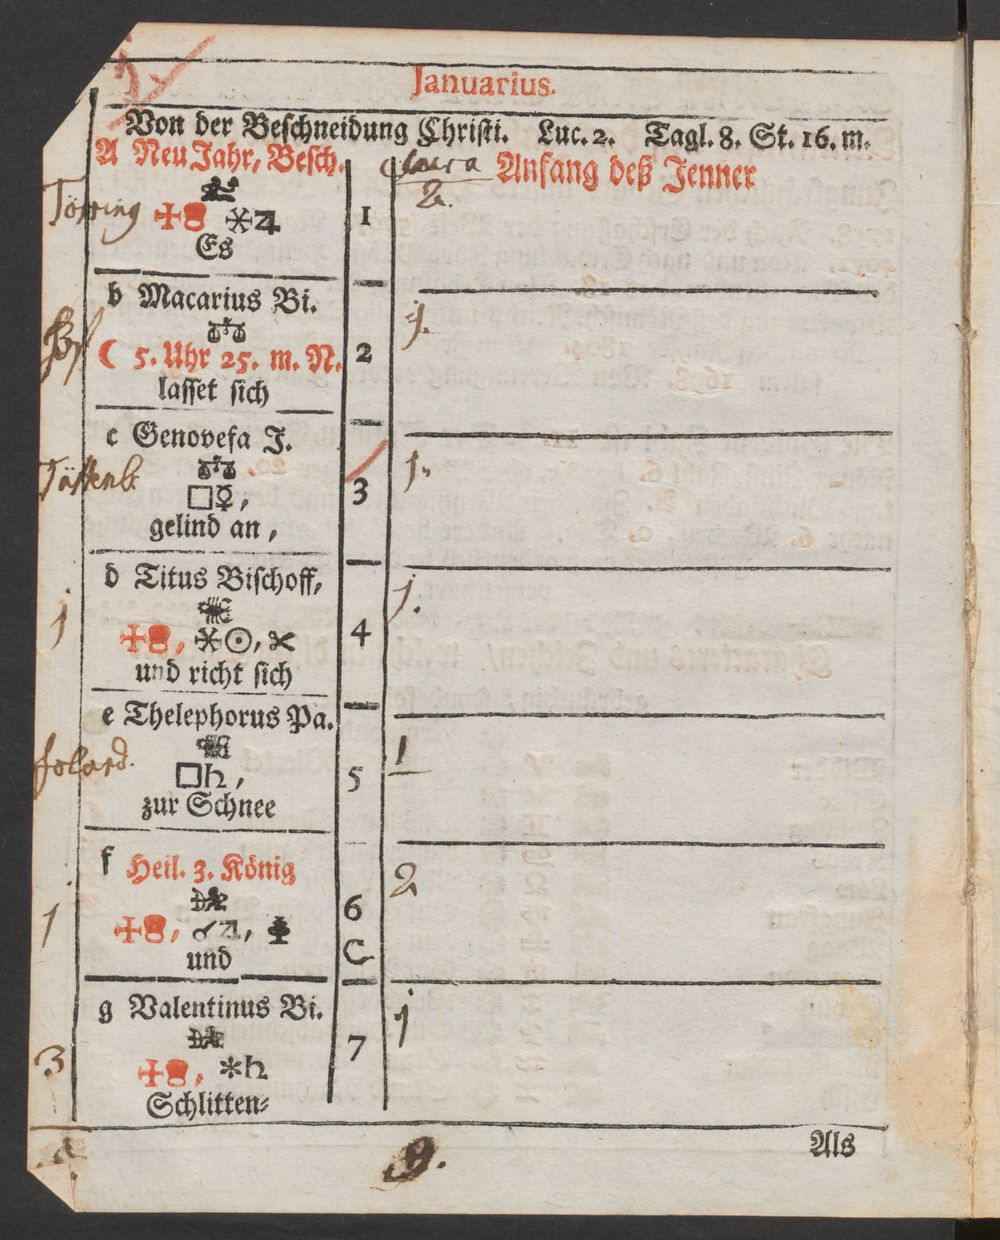 Januarius.
Von der Beschneidung Christi. Luc. 2. Tagl. 8. St. 16. m.
A Neu Jahr, Besch. Anfang deß Jenner
2.
1
Es
b Macarius Bi.
j.
☾ 5. Uhr 25. m. N. 2
lasset sich
c Genovefa J.
j.
□☿, 3
gelind an,
d Titus Bischoff,
j.
j 4
und richt sich
e Thelephorus Pa.
1
□♄, 5
zur Schnee
f Heil. 3. König
2
6
1 C
und
g Valentinus Bi.
j
3 7
Schlitten⸗
Als
9.